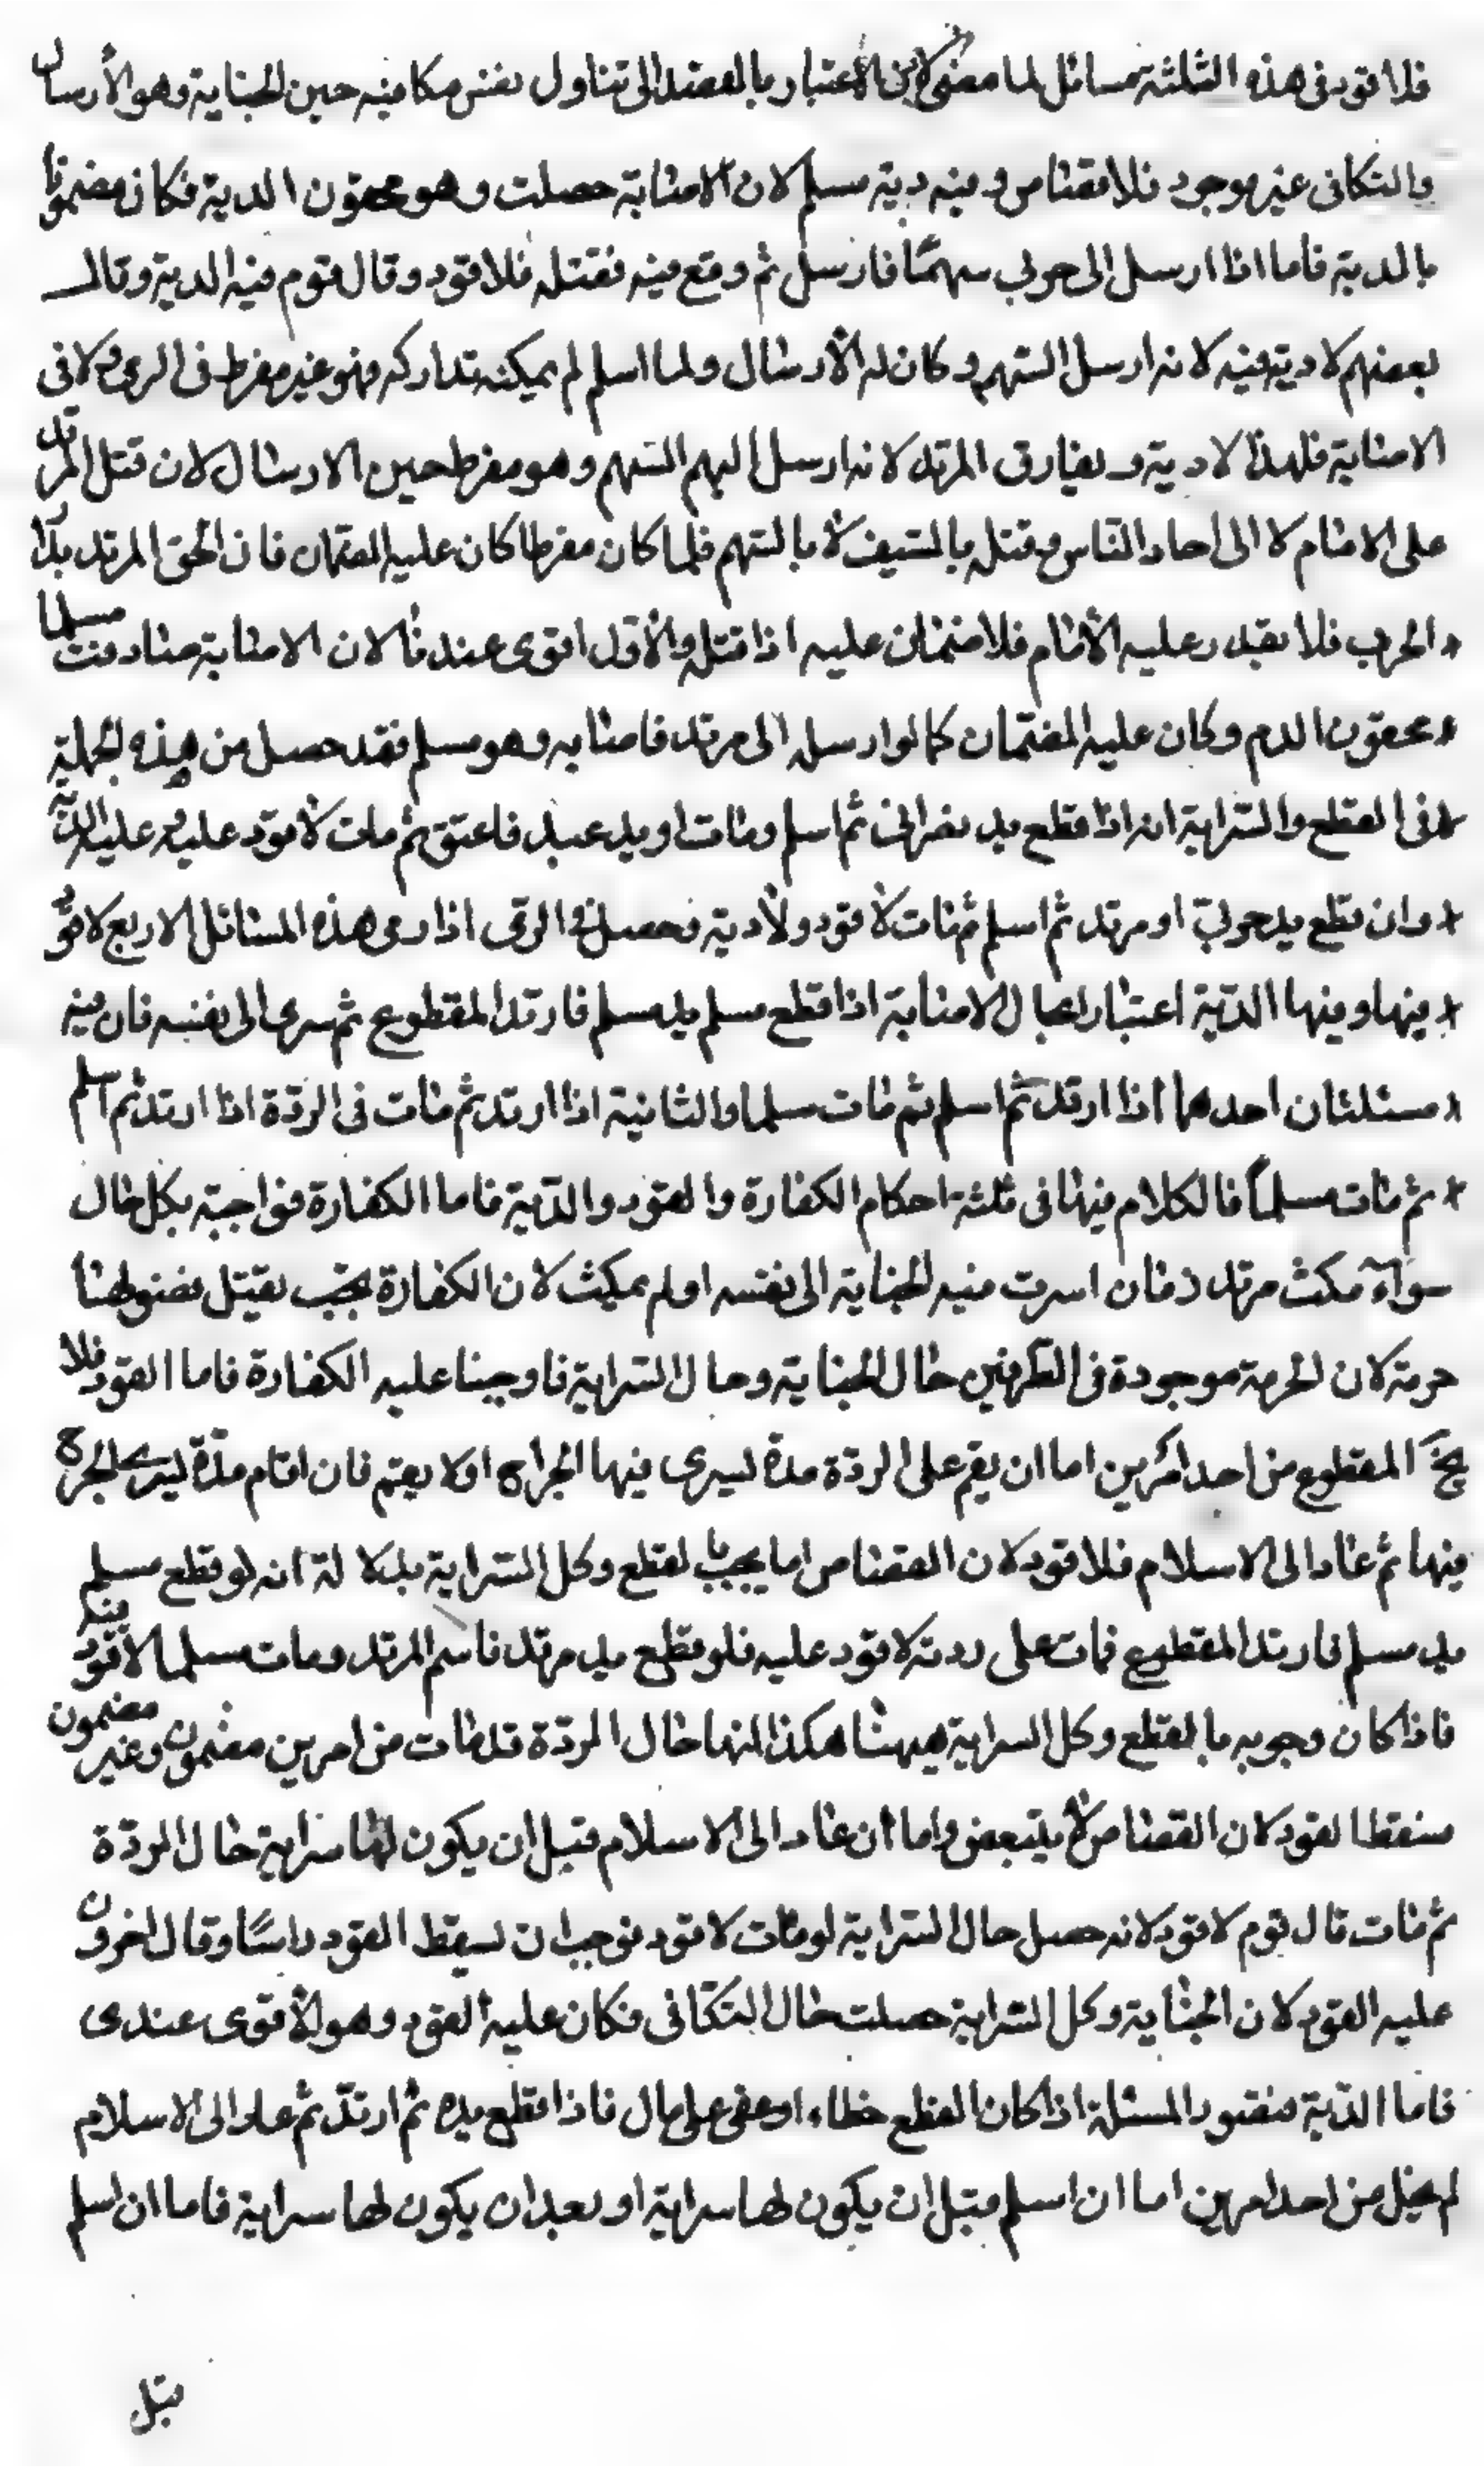 فلا قود في هذه الثلثة مسائل لما مضى لان الاعتبار بالقصد الى تناول نفس مكافيه حين الجناية وهو الأرسال
والتكافى غير موجود فلا قصاص وفيه دية مسلم لان الاصابة حصلت وهو محقون الدية فكان مضمونا
بالدية فاما اذا ارسل الى حربي سهمًا فارسل ثم وقع فيه فقتله فلا قود وقال قوم فيه الدية وقال
بعضهم لا دية فيه لانه ارسل السّهم وكان له الأرسال ولما اسلم لم يمكنه تداركه فهو غير مفرط في الرمى ولا في
الاصابة فلهذا لا دية ويفارق المرتد لانه ارسل اليهم السّهم وهو مفرط حين الارسال لان قتل المرتد
على الامام لا الى احاد النّاس وقتله بالسّيف لا بالسّهم فلما كان مفرطا كان عليه الضمان فان الحق المرتد بدار
الحرب فلا يقدر عليه الأمام فلا ضمان عليه اذا قتله والأوّل اقوى عندنا لان الاصابة صادفت مسلما
محقون الدم وكان عليه الضمان كما لو ارسله الى مرتد فاصابه وهو مسلم فقد حصل من هذه الجملة
في القطع والسّراية انه اذا قطع يد نصراني ثم اسلم ومات او يد عبد فاعتق ثم مات لا قود عليه وعليه الدّية
وان قطع يد حربيّ او مرتد ثم اسلم ثم مات لا قود ولا دية فحصل في الرمى اذا رمى هذه المسائل الاربع لا قود
فيها وفيها الدّية اعتبارا بحال الاصابة اذا قطع مسلم يد مسلم فارتد المقطوع ثم سرى الى نفسه فان فيه
مسئلتان احدهما اذا ارتد ثم اسلم ثم مات مسلما والثانية اذا ارتد ثم مات في الردّة اذا ارتد ثم اسلم
ثم مات مسلمًا فالكلام فيها في ثلثة احكام الكفارة والقود والدّية فاما الكفارة فواجبة بكل حال
سوآء مكث مرتد زمان اسرت فيه الجناية الى نفسه اولم يمكث لان الكفارة تجب بقتل نفس لها
حرمة لان الحرمة موجودة في الطّرفين حال الجناية وحال السّراية فاوجبنا عليه الكفارة فاما القود فلا
يخ‍ المقطوع من احد امرين اما ان يقم على الردّة مدة ليسرى فيها الجراح اولا يقم فان اقام مدّة ليسرى الجرح
فيها ثم عاد الى الاسلام فلا قود لان القصاص اما يجب بالقطع وكل السّراية بدلالة انه لو قطع مسلم
يد مسلم فارتد المقطوع فمات على ردته لا قود عليه فلو قطع يد مرتد فاسلم المرتد ومات مسلما لا قود فيه
فاذا كان وجوبه بالقطع وكل السراية هيهنا هكذا لانها حال الردّة قد مات من امرين مضمون وغير مضمون
سقط القود لان القصاص لا يتبعض واما ان عاد الى الاسلام قبل ان يكون لها سراية حال الردّة
ثم مات قال قوم لا قود لانه حصل حال السّراية لو مات لا قود فوجب ان يسقط القود راسًا وقال اخرون
عليه القود لان الجناية وكل السّراية حصلت حال التكافى فكان عليه القود وهو الأقوى عندى
فاما الدّية فنقود المسئلة اذا كان القطع خطاء او عفى على مال فاذا قطع يده ثم ارتدّ ثم عاد الى الاسلام
لم يخل من احد امرين اما ان اسلم قبل ان يكون لها سراية او بعد ان يكون لها سراية فاما ان اسلم
قبل